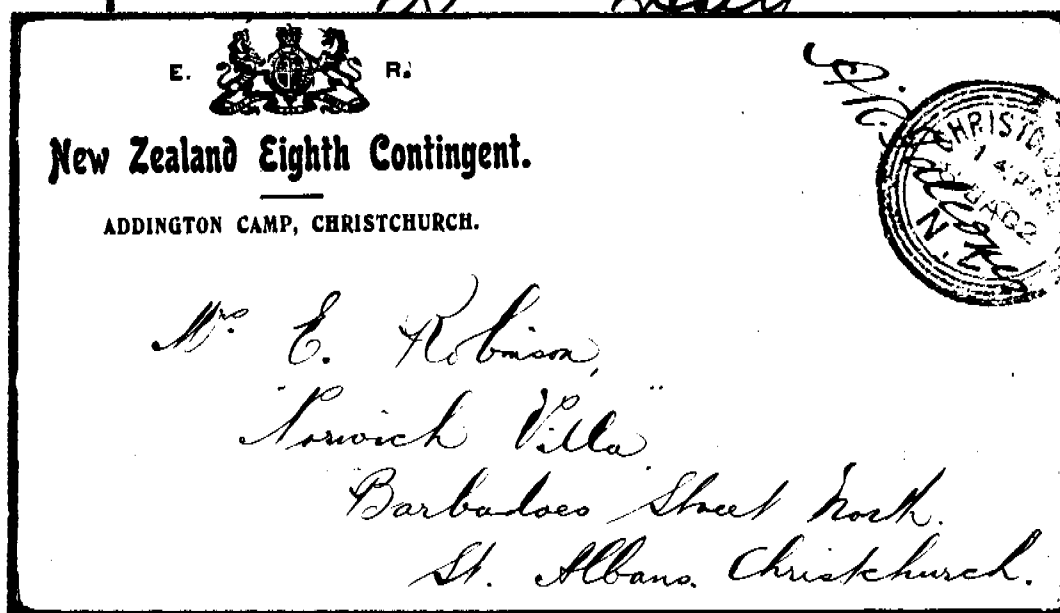 E. R.
New Zealand Eighth Contingent.
ADDINGTON CAMP, CHRISTCHURCH.
CHRISTCH
JA 02
N.Z
Mr. E. Robinson,
"Norwich Villa"
Barbadoes Street North.
St. Albans. Christchurch.